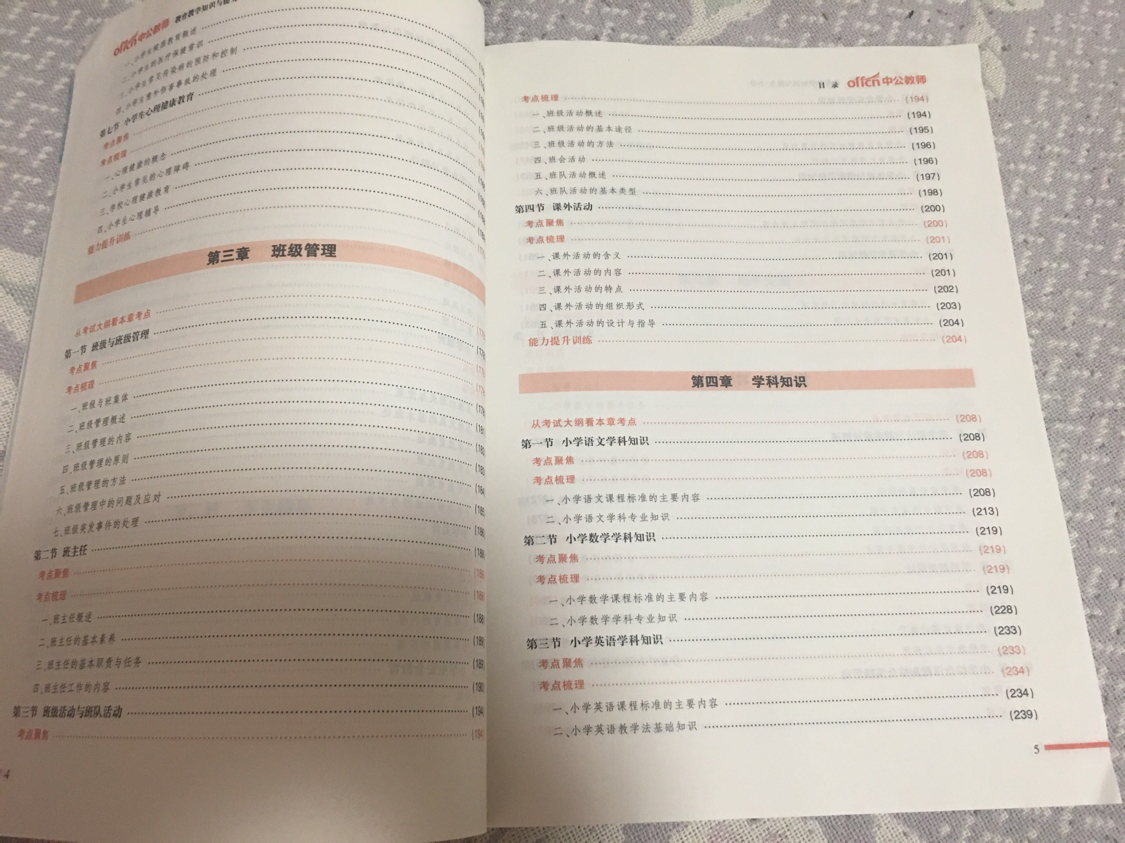 offcn中公教师 教育教学知识与能
一、小学生健康教育概述
二、小学生的医疗保健常识
三、小学生常见传染病的预防和控制
四、小学生意外伤害事故的处理
第七节 小学生心理健康教育
考点聚焦
考点梳理
一、心理健康的概念
二、小学生常见的心理障碍
三、学校心理健康教育
四、小学生心理辅导
能力提升训练
第三章 班级管理
从考试大纲看本章考点
第一节 班级与班级管理
考点聚焦
考点梳理
一、班级与班集体
二、班级管理概述
三、班级管理的内容
四、班级管理的原则
五、班级管理的方法
六、班级管理中的问题及应对
七、班级突发事件的处理
第二节 班主任
考点聚焦
考点梳理
一、班主任概述
二、班主任的基本素养
三、班主任的基本职责与任务
四、班主任工作的内容 (190
第三节 班级活动与班队活动 (194
考点聚焦 (194
4
目 录 offcn中公教师
考点梳理 (194)
一、班级活动概述 (194)
二、班级活动的基本途径 (195)
三、班级活动的方法 (196)
四、班会活动 (196)
五、班队活动概述 (197)
六、班队活动的基本类型 (198)
第四节 课外活动 (200)
考点聚焦 (200)
考点梳理 (201)
一、课外活动的含义 (201)
二、课外活动的内容 (201)
三、课外活动的特点 (202)
四、课外活动的组织形式 (203)
五、课外活动的设计与指导 (204)
能力提升训练 (204)
第四章 学科知识
从考试大纲看本章考点 (208)
第一节 小学语文学科知识 (208)
考点聚焦 (208)
考点梳理 (208)
一、小学语文课程标准的主要内容 (208)
二、小学语文学科专业知识 (213)
第二节 小学数学学科知识 (219)
考点聚焦 (219)
考点梳理 (219)
一、小学数学课程标准的主要内容 (219)
二、小学数学学科专业知识 (228)
第三节 小学英语学科知识 (233)
考点聚焦 (233)
考点梳理 (234)
一、小学英语课程标准的主要内容 (234)
二、小学英语教学法基础知识 (239)
5